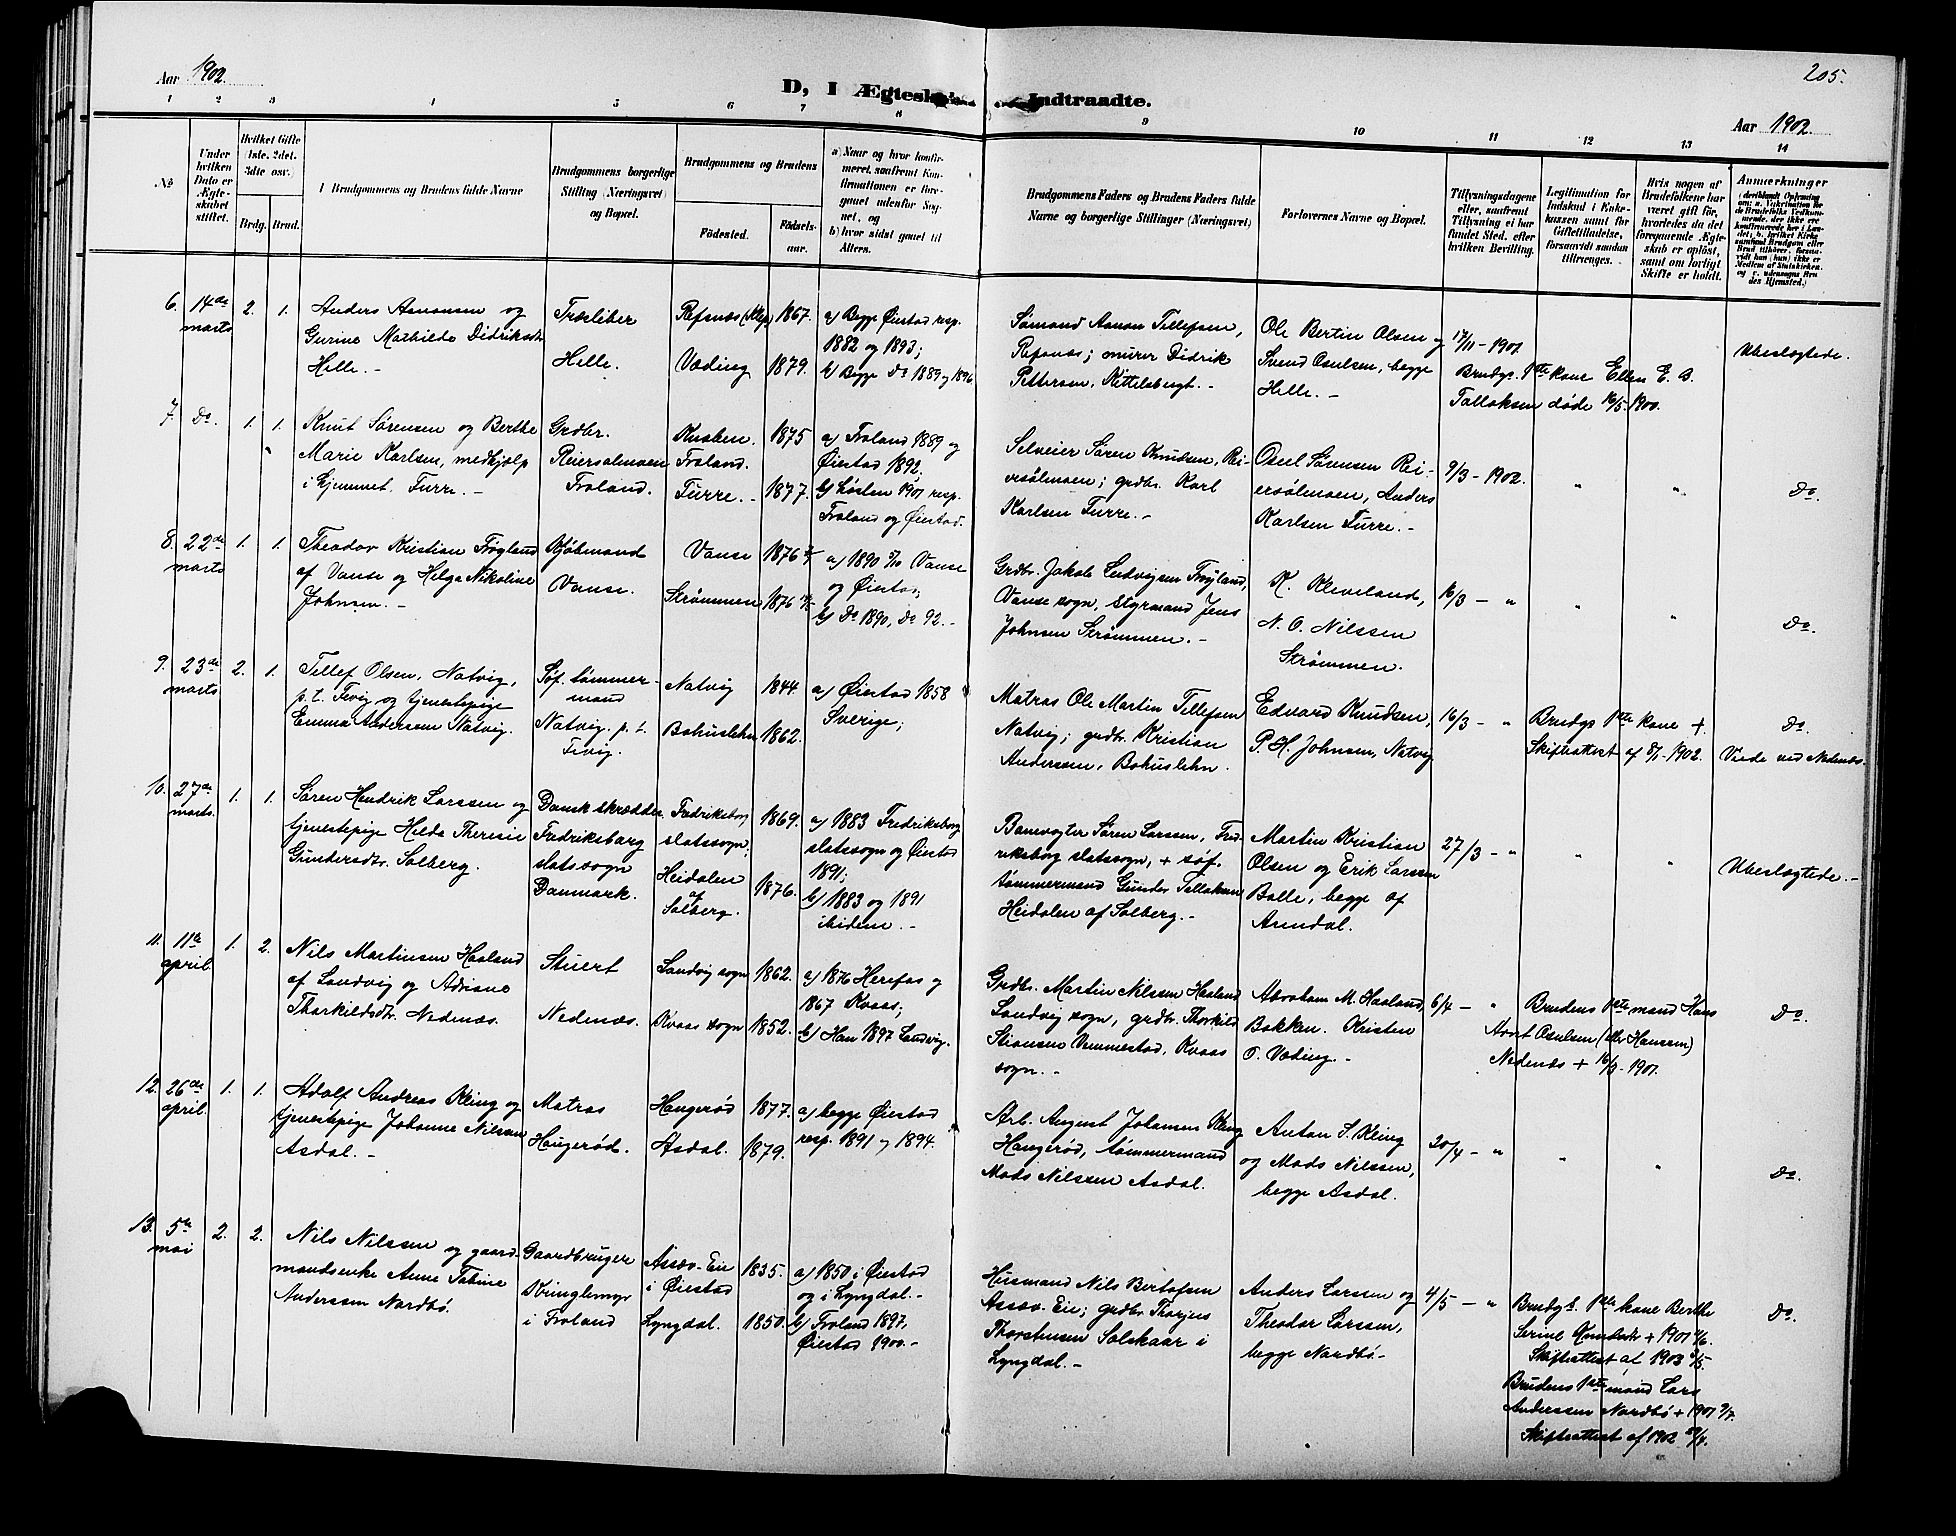 Aar 1902.
205.
D, I Ægteskab Indtraadte.
Aar 1902.
1 2 3 4 5 6 7 8 9 10 11 12 13 14
No
Under hvilken Dato er Ægteskabet stiftet.
Hvilket Gifte (1ste, 2det, 3die osv.)
Brdg. Brud.
Brudgommens og Brudens fulde Navne
Brudgommens borgerlige Stilling (Næringsvei) og Bopæl.
Brudgommens og Brudens
Födested.
Födselsaar.
a) Naar og hvor konfirmeret, saafremt Konfirmationen er foregaaet udenfor Sognet, og
b) hvor sidst gaaet til Alters.
Brudgommens Faders og Brudens Faders fulde Navne og borgerlige Stillinger (Næringsvei)
Forlovernes Navne og Bopæl.
Tillysningsdagene eller, saafremt Tillysning ei har fundet Sted, efter hvilken Bevilling.
Legitimation for Indskud i Enkekassen samt for Giftetilladelse, forsaavidt saadan tiltrænges.
Hvis nogen af Brudefolkene har været gift för, hvorledes da det foregaaende Ægteskab er oplöst, samt om lovligt Skifte er holdt.
Anmærkninger
6. 14de marts 2. 1.
Anders Aanonsen og
Gurine Mathilde Didriksdt.
Helle. -
Træsliber
Helle.
Refsnæs 1867.
Væding 1879.
a) Begge Øiestad resp.
1882 og 1893;
b) Begge Do 1889 og 1896
Sømand Aanon Tellefsen,
Refsnæs; murer Didrik
Pettersen, Kittelsbugt. -
Ole Bertin Olsen og
Svend Osulsen, begge
Helle. -
17/11 - 1901.
Brudgs. 1ste kone Ellen E. B.
Tallaksen døde 16/5 1900.
Ubeslægtede.
7. Do. 1. 1.
Knut Sørensen og Berthe
Marie Karlsen, medhjælp
i hjemmet. Furre. -
Grdbr.
Reiersølmoen
Froland.
Knaben. 1875
Froland.
Furre. - 1877.
a) Froland 1889 og
Øiestad 1892.
b) høsten 1901 resp.
Froland og Øiestad.
Selveier Søren Knudsen, Reiersølmoen; grdbr. Karl
Karlsen Furre. -
Osuld Sørensen Reiersølmoen, Anders
Karlsen Furre. -
9/3 - 1902. " "
Do.
8. 22de marts 1. 1.
Theodor Kristian Frøyland
af Vanse og Helga Nikoline
Johnsen. -
Kjøbmand
Vanse.
Vanse 1876
Strømmen 1876
a) 1890 Vanse
og Øiestad;
b) Do 1890, Do 92. -
Grdbr. Jakob Ludvigsen Frøyland,
Vanse sogn, styrmand Jens
Johnsen Strømmen. -
K. Kleveland,
N. O. Nilssen
Strømmen.
16/3 - " " "
Do.
9. 23de marts 2. 1.
Tellef Olsen, Natvig,
p. t. Fevig og tjenestepige
Emma Andersen Natvig.
Søf. tømmermand
Natvig. p. t.
Fevig.
Natvig 1844.
Bohuslehn 1862.
a) Øiestad 1858
Sverige;
Matros Ole Martin Tellefsen
Natvig; grdbr. Kristian
Anderssen, Bohuslehn.
Edvard Knudsen,
P. H. Johnsen, Natvig
16/3 - "
Brudgs 1ste kone +
Skifteattest af 8/1 - 1902.
Do.
Viede ved Nedenæs.
10. 27de marts. 1. 1.
Søren Hendrik Larssen og
tjenestepige Hilda Theresie
Gundersdtr. Solberg.
Dansk skrædder.
Fredriksborg
slotssogn
Danmark.
Fredriksborg
slotssogn, 1869.
Heidalen
af
Solberg. 1876.
a) 1883 Fredriksborg
slotssogn og Øiestad
1891;
b) 1883 og 1891
ibidem. -
Banevogter Søren Larssen, Fredriksborg slotssogn, + søf.
tømmermand Gunder Tellaksen
Heidalen af Solberg. -
Martin Kristian
Olsen og Erik Larssen
Balle, begge af
Arendal.
27/3 - " " "
Ubeslægtede. -
11. 11te april. 1. 2.
Nils Martinsen Haaland
af Landvig og Adriane
Thorkildsdtr. Nedenæs.
Stuert
Nedenæs.
Landvig sogn 1862.
Kvaas sogn 1852.
a) 1876 Herefos og
1867 Kvaas;
b) Han 1897 Landvig.
Grdbr. Martin Nilssen Haaland
Landvig sogn, grdbr. Thorkild
Stiansen Vemmestad, Kvaas
sogn. -
Abraham M. Haaland,
Bakken. Kristen
O. Væding. -
6/4 - "
Brudens 1ste mand Hans
Osulsen (eller Hanssen)
Nedenæs + 16/9 - 1901.
Do.
12. 26de april 1. 1.
Adolf Andreas Kling og
tjenestepige Johanne Nilsen
Asdal. -
Matros
Haugerød.
Haugerød 1877.
Asdal. 1879.
a) begge Øiestad
resp. 1891 og 1894.
Arb. August Johansen Kling
Haugerød, tømmermand
Mads Nilssen Asdal.
Anton S. Kling
og Mads Nilssen,
begge Asdal.
20/4 - " " "
Do.
13. 5te mai 2. 2.
Nils Nilssen og gaardmandsenke Anne Tobine
Anderssen Nordbø.
Gaardbruger
Kringlemyr
i Froland
Assev. Eie
i Øiestad 1835.
Lyngdal. 1850.
a) 1850 i Øiestad
og i Lyngdal. -
b) Froland 1897,
Øiestad 1900. -
Husmand Nils Bertofsen
Assev. Eie; grdbr. Thorjus
Thorstensen Salskaar i
Lyngdal. -
Anders Larssen og
Theodor Larssen,
begge Nordbø -
4/5 - "
Brudgs. 1ste kone Berthe
Serine Knudsdt + 1901
Skifteattest af 1903
Brudens 1ste mand Lars
Anderssen Nordbø + 1901
Skifteattest af 1902
Do.